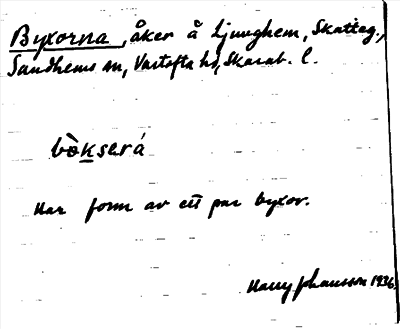 Byxorna, åker å Ljunghem, Skatteg.,
Sandhems sn, Vartofta hd, Skarab. l.
bò̀kserá
Har form av ett par byxor.
Harry Johansson 1936.